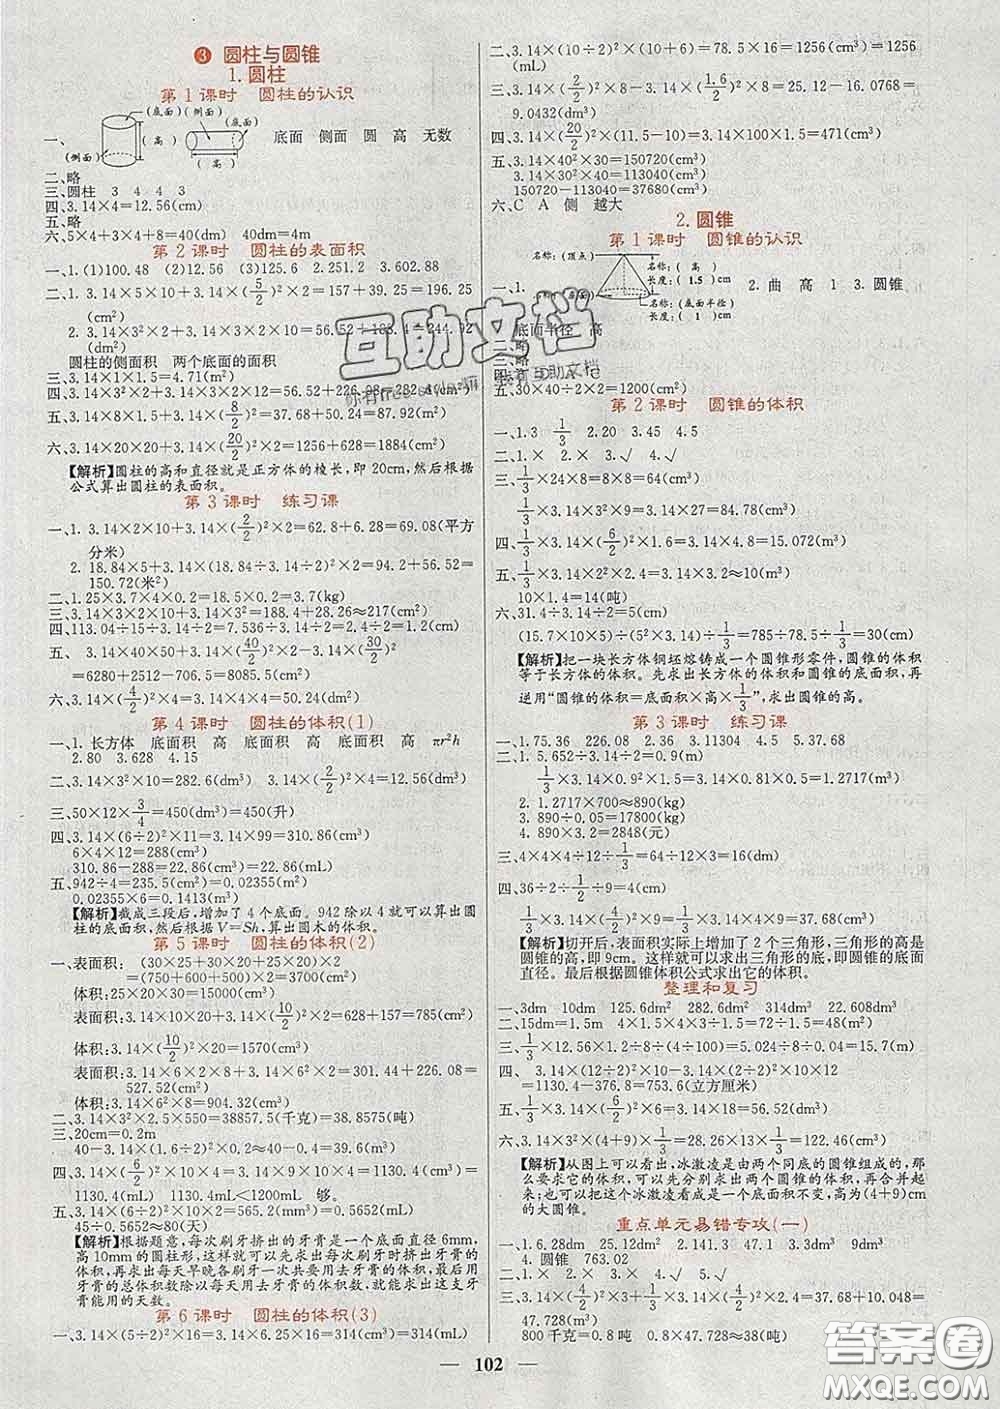 3 圆柱与圆锥
1.圆柱
第1课时 圆柱的认识
一、(底面) (侧面) (高) (侧面) (底面) (高) 底面 侧面 圆 高 无数
二、略
三、圆柱 3 4 4 3
四、3.14×4=12.56(cm)
五、略
六、5×4+3×4+8=40(dm) 40dm=4m
第2课时 圆柱的表面积
一、1.(1)100.48 (2)12.56 (3)125.6 2.251.2 3.602.88
二、1.3.14×5×10+3.14×(5/2)²×2=157+39.25=196.25
(cm²)
(dm²)
圆柱的侧面积 两个底面的面积
三、3.14×1×1.5=4.71(m²)
五、3.14×8×1.5+3.14×(8/2)²=37.68+50.24=87.92(m²)
六、3.14×20×20+3.14×(20/2)²×2=1256+628=1884(cm²)
【解析】圆柱的高和直径就是正方体的棱长,即20cm,然后根据
公式算出圆柱的表面积。
第3课时 练习课
一、1.3.14×2×10+3.14×(2/2)²×2=62.8+6.28=69.08(平方
分米)
2.18.84×5+3.14×(18.84÷3.14÷2)²×2=94.2+56.52=
150.72(米²)
二、1.25×3.7×4×0.2=18.5×0.2=3.7(kg)
三、3.14×3×2×10+3.14×3²=188.4+28.26≈217(cm²)
四、113.04÷15÷3.14÷2=7.536÷3.14÷2=2.4÷2=1.2(cm)
五、3.14×40×50+3.14×(40/2)²×2-3.14×(30/2)²
=6280+2512-706.5=8085.5(cm²)
六、3.14×(4/2)²×4=3.14×4×4=50.24(dm²)
第4课时 圆柱的体积(1)
一、1.长方体 底面积 高 底面积 高 底面积 高 πr²h
2.80 3.628 4.15
二、3.14×3²×10=282.6(dm³) 3.14×(2/2)²×4=12.56(dm³)
三、50×12×3/4=450(dm³)=450(升)
四、3.14×(6÷2)²×11=3.14×99=310.86(cm³)
6×4×12=288(cm³)
310.86-288=22.86(cm³)=22.86(mL)
五、942÷4=235.5(cm²)=0.02355(m²)
0.02355×6=0.1413(m³)
【解析】截成三段后,增加了4个底面。942除以4就可以算出圆
柱的底面积,然后根据V=Sh,算出圆木的体积。
第5课时 圆柱的体积(2)
一、表面积:(30×25+30×20+25×20)×2
=(750+600+500)×2=3700(cm²)
体积:25×20×30=15000(cm³)
表面积:3.14×10×20+3.14×(10/2)²×2=628+157=785(cm²)
体积:3.14×(10/2)²×20=1570(cm³)
表面积:3.14×6×2×8+3.14×6²×2=301.44+226.08=
527.52(cm²)
体积:3.14×6²×8=904.32(cm³)
二、3.14×3²×2.5×550=38857.5(千克)=38.8575(吨)
三、20cm=0.2m
40-3.14×(6÷2)²×0.2≈40-6=34(m³)
四、3.14×(6/2)²×10×4=3.14×9×10×4=1130.4(cm³)=
1130.4(mL) 1130.4mL<1200mL 够。
五、3.14×(6÷2)²×10×2=565.2(mm³)=0.5652(cm³)
45÷0.5652≈80(天)
【解析】根据题意,每次刷牙挤出的牙膏是一个底面直径6mm,
高10mm的圆柱形,这样就可以先求出每次刷牙时挤出牙膏的
体积,再求出每天早晚各刷牙一次共用去牙膏的体积,最后用
牙膏的总体积数除以每天用去牙膏的体积数,就能求出这支牙
膏能用的天数。
第6课时 圆柱的体积(3)
一、3.14×(5÷2)²×16=3.14×6.25×16=314(cm³)=314(mL)
二、3.14×(10÷2)²×(6+10)=78.5×16=1256(cm³)=1256
(mL)
三、3.14×(2/2)²×8-3.14×(1.6/2)²×8=25.12-16.0768=
9.0432(dm³)
四、3.14×(20/2)²×(11.5-10)=3.14×100×1.5=471(cm³)
五、3.14×40²×30=150720(cm³)
3.14×30²×40=113040(cm³)
150720-113040=37680(cm³)
六、C A 侧 越大
2.圆锥
第1课时 圆锥的认识
一、1. 名称:(顶点) 名称:(高) 长度:(1.5)cm 名称:(底面半径) 长度:(1)cm 2.曲 高 1 3.圆锥
二、底面半径 高
三、略
五、30×40÷2×2=1200(cm²)
第2课时 圆锥的体积
一、1.3 1/3 2.20 3.45 4.5
二、1.× 2.× 3.√ 4.√
三、1/3×24×8=8×8=64(cm³)
1/3×3.14×3²×9=3.14×27=84.78(cm³)
四、1/3×3.14×(6/2)²×1.6=3.14×4.8=15.072(m³)
五、1/3×3.14×2²×2.4=3.14×3.2≈10(m³)
10×1.4=14(吨)
六、31.4÷3.14÷2=5(cm)
(15.7×10×5)÷(5²×3.14)÷1/3=785÷78.5÷1/3=30(cm)
【解析】把一块长方体钢坯熔铸成一个圆锥形零件,圆锥的体积
等于长方体的体积。先求出长方体的体积和圆锥的底面积,再
逆用“圆锥的体积=底面积×高×1/3”,求出圆锥的高。
第3课时 练习课
一、1.75.36 226.08 2.36 3.11304 4.6 5.37.68
二、1.1.5÷(3+2)×3=0.9(m)
1/3×3.14×0.9²×1.5=1/3×3.14×0.81×1.5=1.2717(m³)
2.1.2717×700≈890(kg)
3.890÷0.05=17800(m²)
4.890×3.2=2848(元)
三、4×4×4÷12÷1/3=64÷12×3=16(dm)
四、36÷2÷1/2÷9=4(cm)
1/3×3.14×(4/2)²×9=1/3×3.14×4×9=37.68(cm³)
【解析】切开后,表面积实际上增加了2个三角形,三角形的高是
圆锥的高,即9cm。这样就可以求出三角形的底,即圆锥的底面
直径。最后根据圆锥体积公式求出它的体积。
整理和复习
一、3dm 10dm 125.6dm² 282.6dm³ 314dm² 314dm³
二、15dm=1.5m 4×1.5×4×3÷1.5=72÷1.5=48(m²)
三、1/3×12.56×1.2÷8÷(5÷100)=5.024÷8÷0.05=12.56(m)
四、3.14×(12÷2)²×10-3.14×(2÷2)²×10×12
=1130.4-376.8=753.6(立方厘米)
五、1/3×3.14×(6/2)²×6=3.14×18=56.52(dm³)
六、3.14×3²×(4+9)×1/3=28.26×13×1/3=122.46(cm³)
【解析】从图上可以看出,冰激凌是由两个同底的圆锥组成的,那
么要求它的体积,可以先分别求出两个圆锥的体积,再合并起
来;也可以把冰激凌看成是一个底面积不变,高为(4+9)cm
的大圆锥。
重点单元易错专攻(一)
一、1.6.28dm 25.12dm² 2.141.3 47.1 3.3dm² 9dm²
4.圆锥 763.02
二、1.× 2.× 3.× 4.√ 5.√
三、3.14×(4/2)²×3+1/3×3.14×(4/2)²×2.4=37.68+10.048=
47.728(m³)
800千克=0.8吨 0.8×47.728≈38(吨)
互助文档
答案圈
MXQE.COM
102